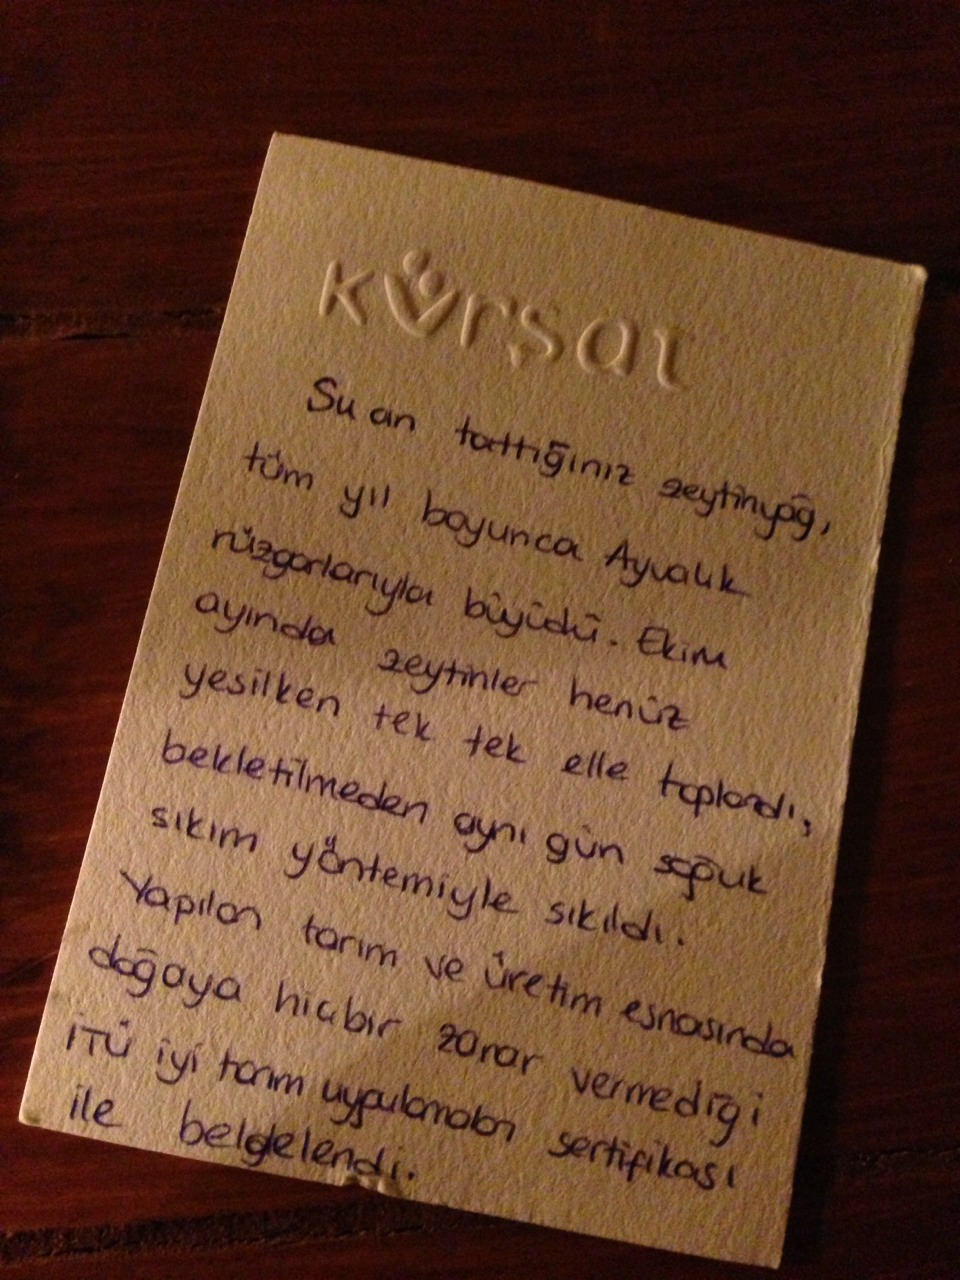 kürşat
Su an tattığınız zeytinyağı,
tüm yıl boyunca Ayvalık
rüzgarlarıyla büyüdü. Ekim
ayında zeytinler henüz
yesilken tek tek elle toplandı,
bekletilmeden aynı gün soğuk
sıkım yöntemiyle sıkıldı.
Yapılan tarım ve üretim esnasında
doğaya hicbir zarar vermediği
İTÜ iyi tarım uygulamaları sertifikası
ile belgelendi.